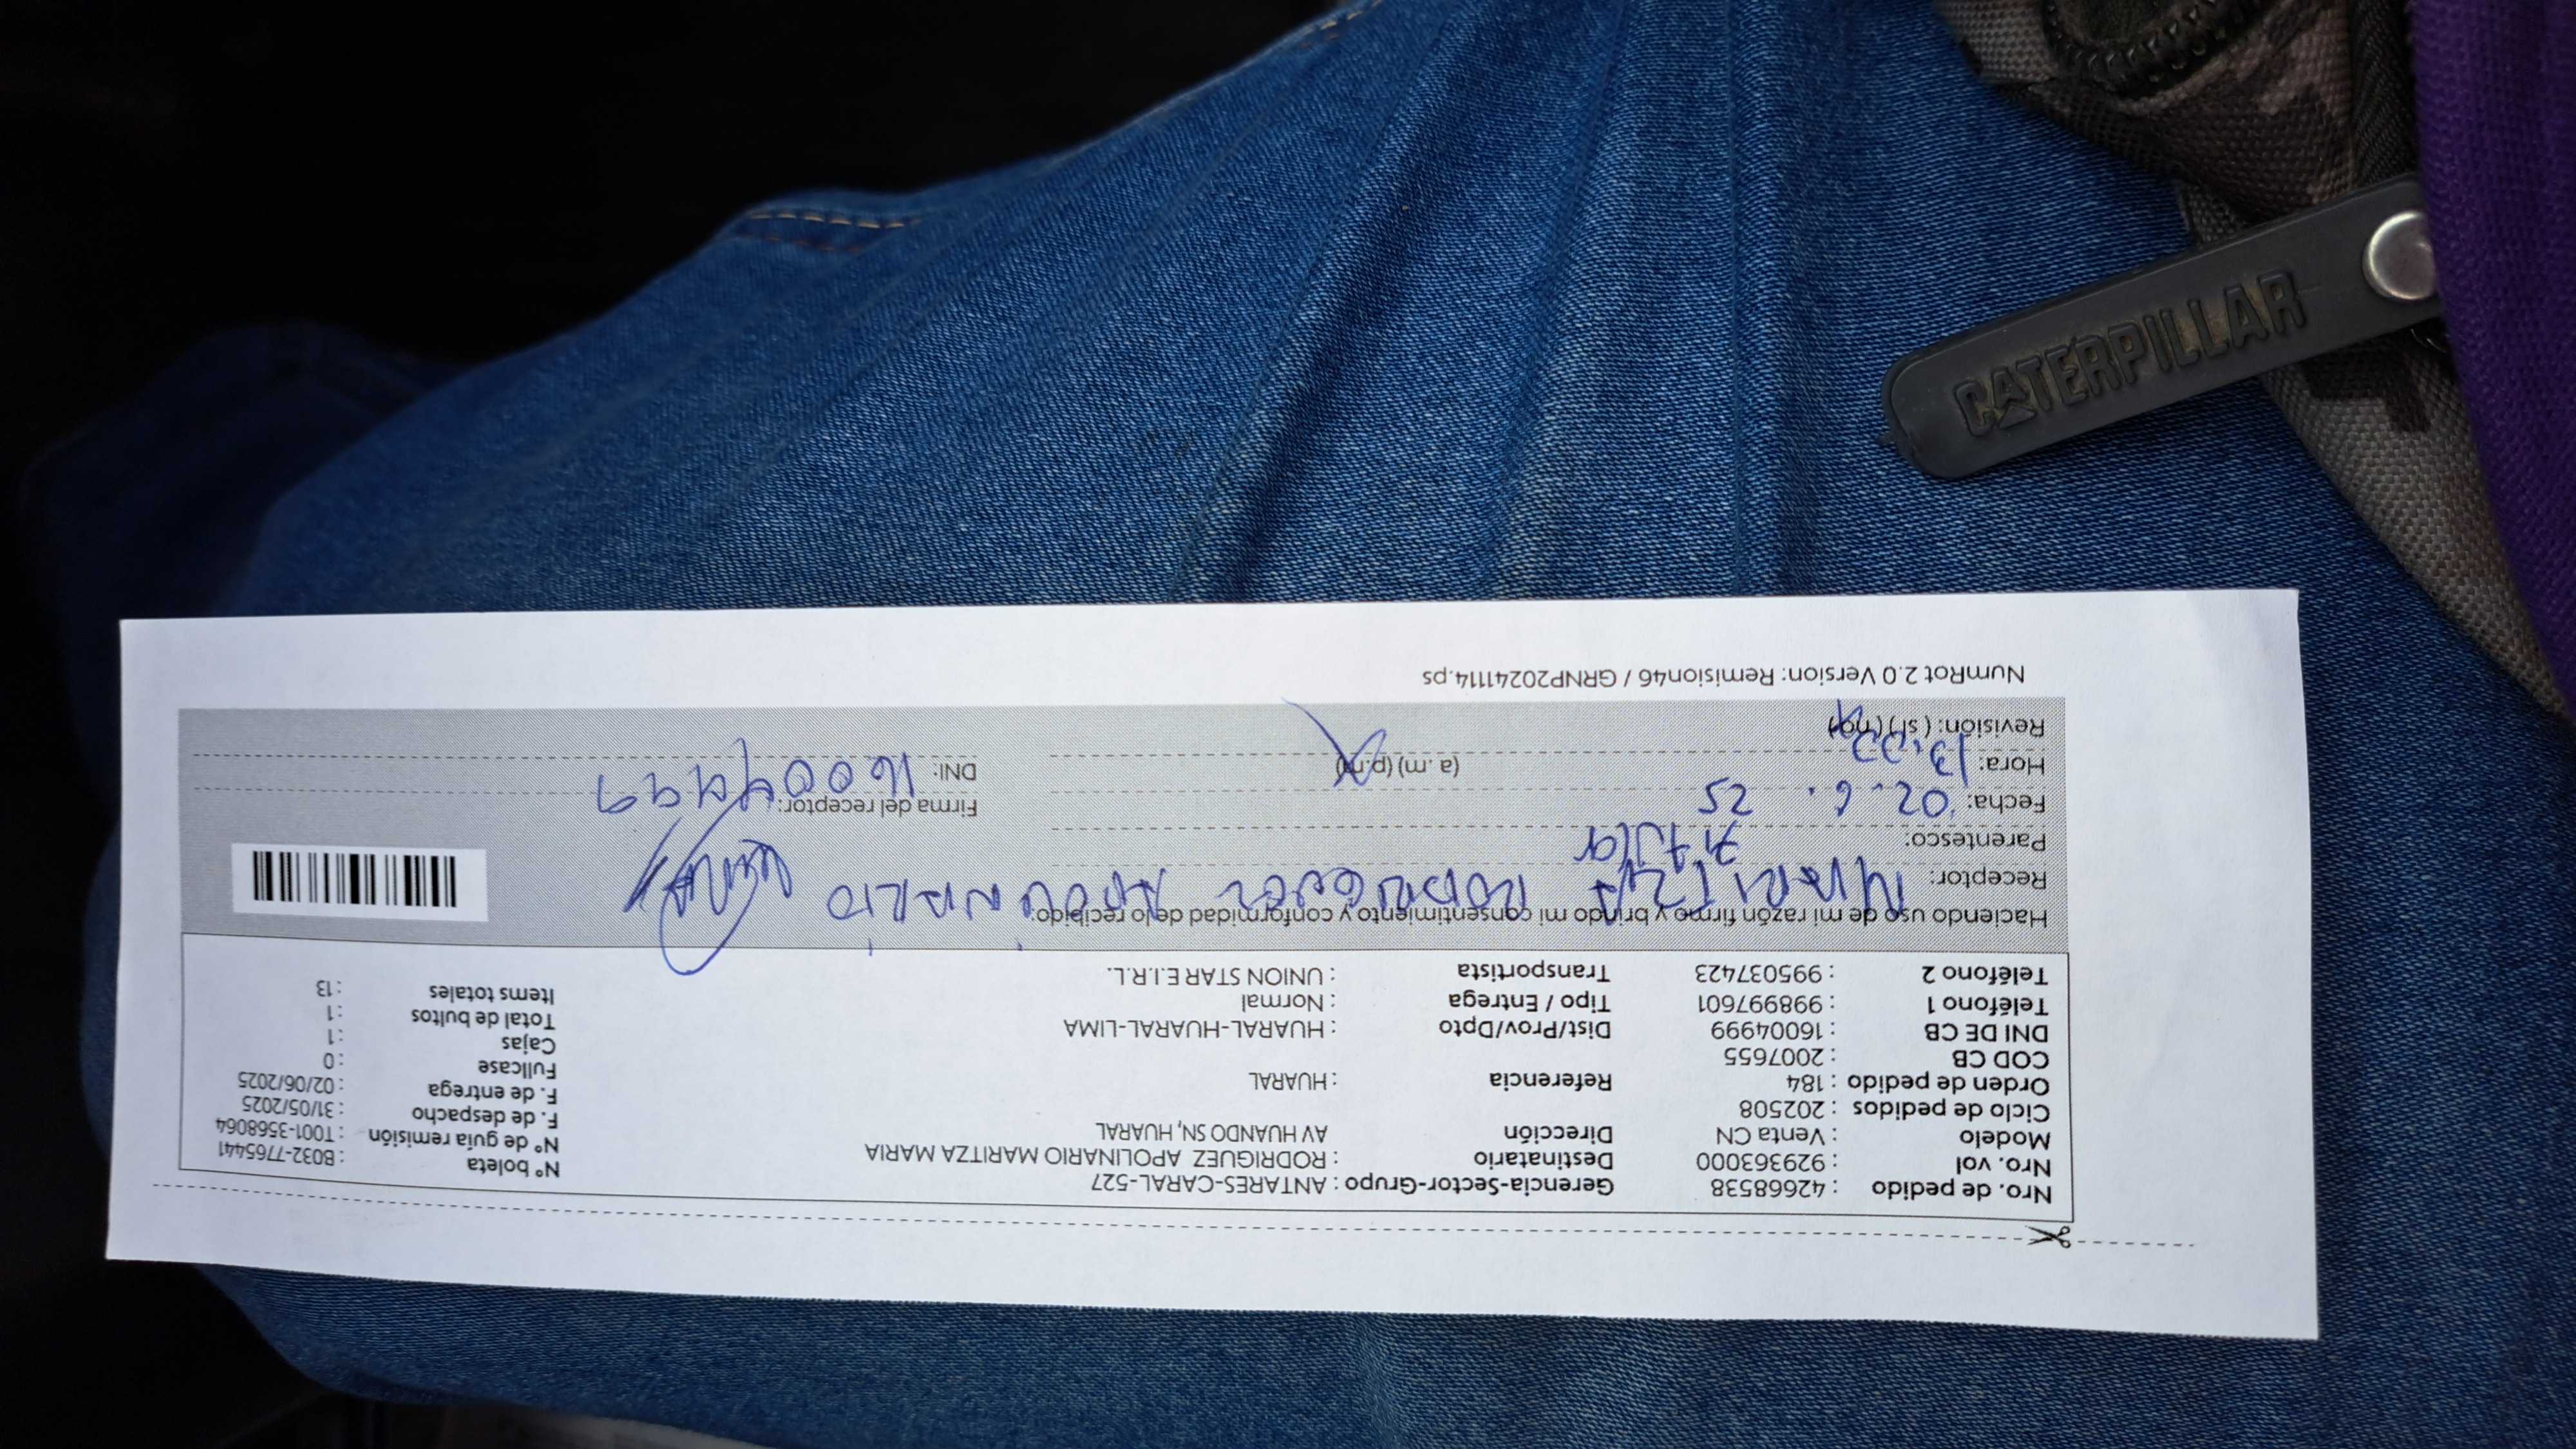 Nro. de pedido : 42668538 Gerencia-Sector-Grupo : ANTARES-CARAL-527 N° boleta : B032-7765441
Nro. vol : 929363000 Destinatario : RODRIGUEZ APOLINARIO MARITZA MARIA N° de guía remisión : T001-3568064
Modelo : Venta CN Dirección AV HUANDO SN, HUARAL F. de despacho : 31/05/2025
Ciclo de pedidos : 202508 F. de entrega : 02/06/2025
Orden de pedido : 184 Referencia : HUARAL Fullcase : 0
COD CB : 2007655 Cajas : 1
DNI DE CB : 16004999 Dist/Prov/Dpto : HUARAL-HUARAL-LIMA Total de bultos : 1
Teléfono 1 : 998997601 Tipo / Entrega : Normal Items totales : 13
Teléfono 2 : 995037423 Transportista : UNION STAR E.I.R.L.
Haciendo uso de mi razón firmo y brindo mi consentimiento y conformidad de lo recibido:
Receptor: MARITZA RODRIGUEZ APOLINARIO
Parentesco: Titular
Fecha: 02 . 6 . 25 Firma del receptor:
Hora: (a. m) (p.m) DNI: 16004999
Revisión: (sí) (no)
NumRot 2.0 Version: Remision46 / GRNP20241114.ps
CATERPILLAR